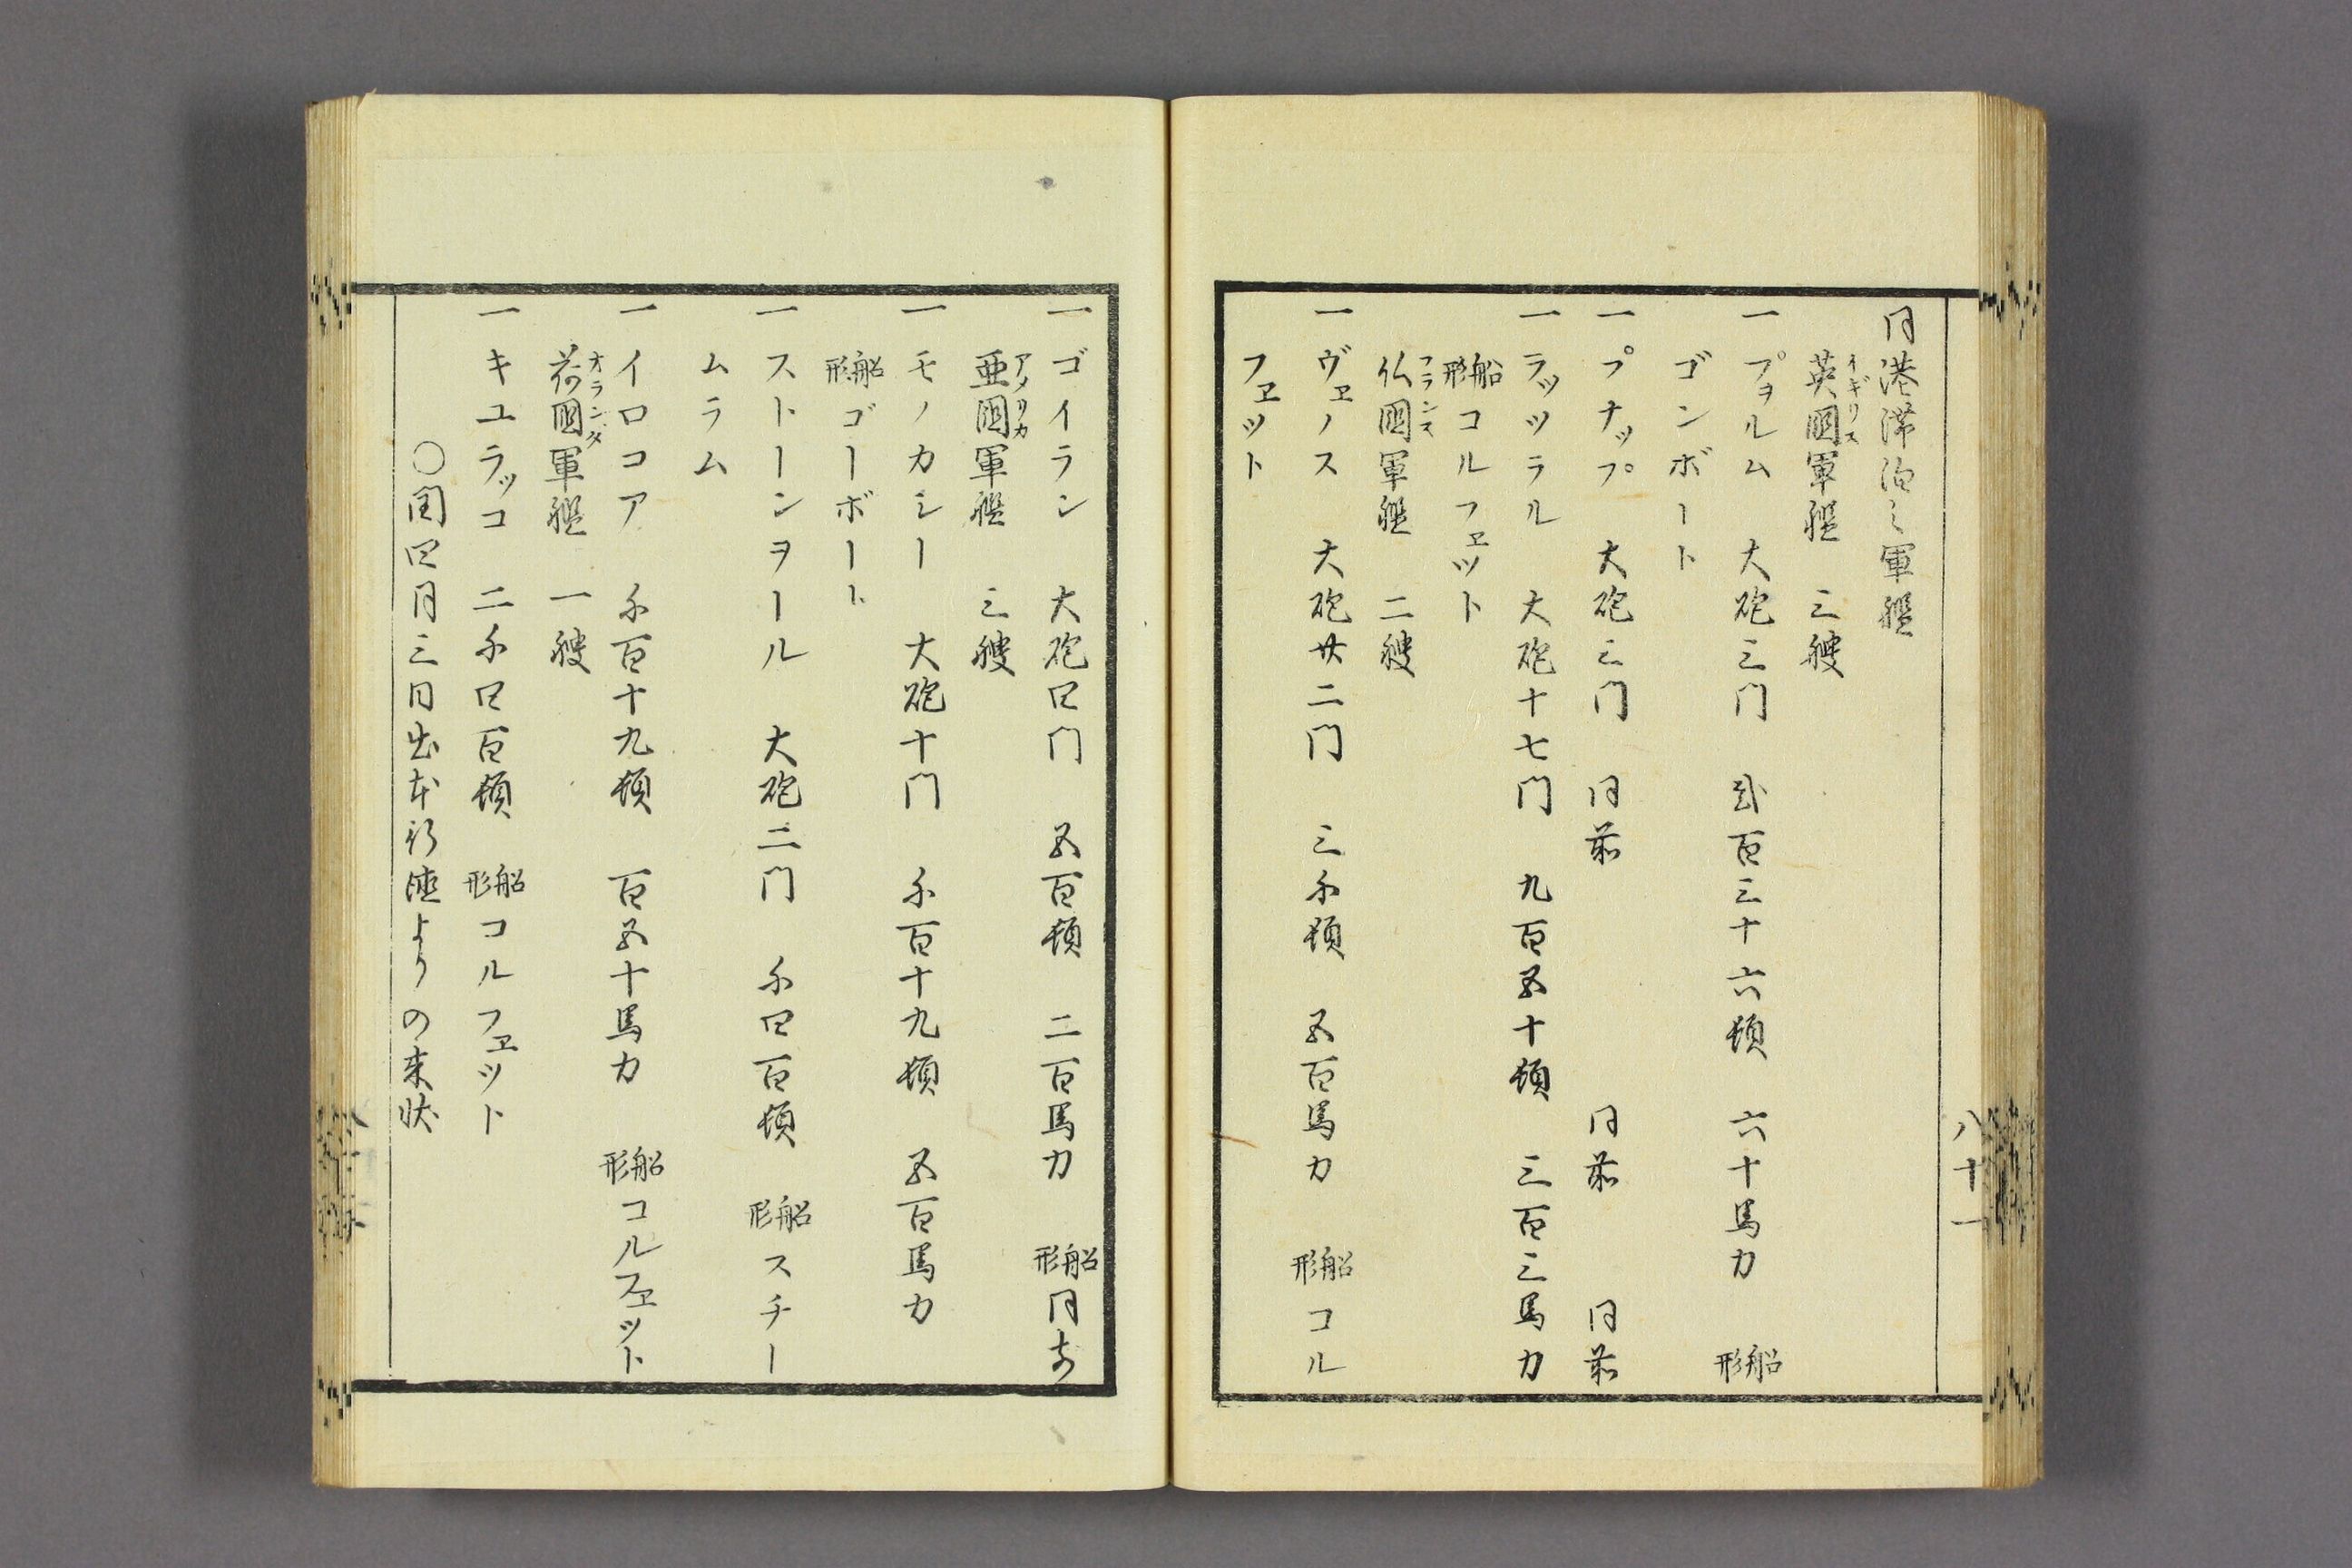 八十一
同港滞泊之軍艦
英國軍艦　三艘
イギリス
一プヲルム　大砲三門　貮百三十六頓　六十馬力　船形
ゴンボート
一プナップ　大砲三門　同前　同前　同前
一ラッツラル　大砲十七門　九百五十頓　三百三馬力
船形コルフヱット
仏國軍艦　二艘
フランス
一ヴェノス　大砲廿二門　三千頓　五百馬力　船形コル
フヱット
一ゴイラン　大砲四門　五百頓　二百馬力　船形同前
亜國軍艦　三艘
アメリカ
一モノカシー　大砲十門　千百十九頓　五百馬力
船形ゴーボート
一ストーンヲール　大砲二門　千四百頓　船形スチー
ムラム
一イロコア　千百十九頓　百五十馬力　船形コルフヱット
荷國軍艦　一艘
オランダ
一キユラッコ　二千四百頓　船形コルフヱット
○閏四月三日出本行徳よりの来状